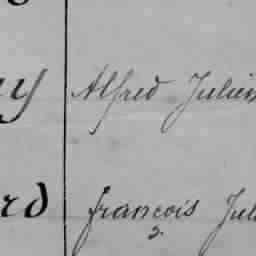 Alfred Julien
françois Jul
2.